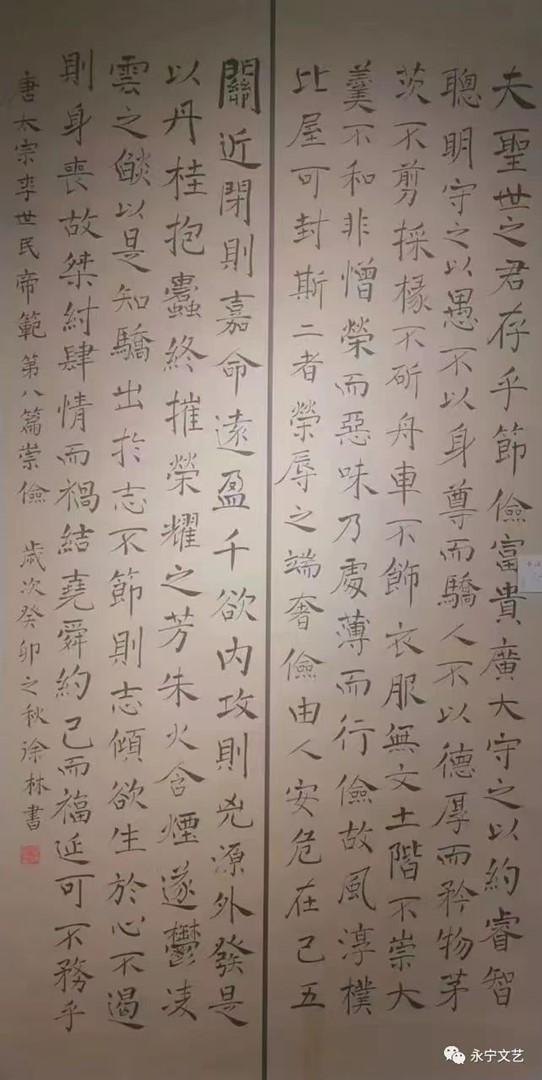 夫聖世之君存乎節儉富貴廣大守之以約睿智
聰明守之以愚不以身尊而驕人不以德厚而矜物茅
茨不剪採椽不斫舟車不飾衣服無文土階不崇大
羹不和非憎榮而惡味乃處薄而行儉故風淳樸
比屋可封斯二者榮辱之端奢儉由人安危在己五
關近閉則嘉命遠盈千欲內攻則兇源外發是
以丹桂抱蠹終摧榮耀之芳朱火含煙遂鬱凌
雲之燄以是知驕出於志不節則志傾欲生於心不遏
則身喪故桀紂肆情而禍結堯舜約己而福延可不務乎
唐太宗李世民帝範第八篇崇儉 歲次癸卯之秋徐林書
永宁文艺